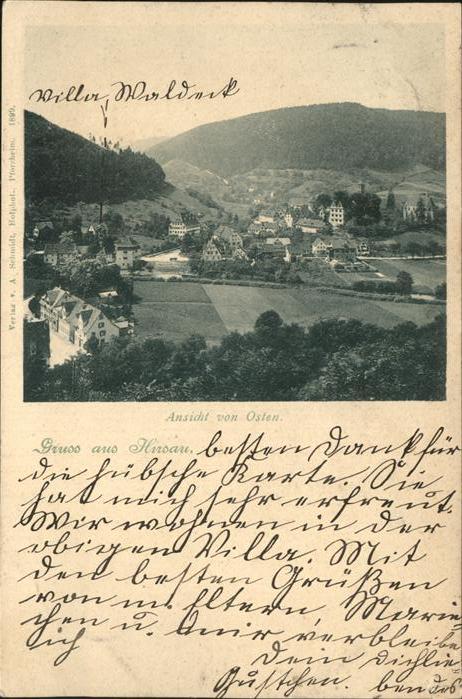 Villa Waldeck
Verlag v. A. Schmidt, Hofphot. Pforzheim. 1899.
Ansicht von Osten.
Gruss aus Hirsau. besten Dank für
die hübsche Karte. Sie
hat mich sehr erfreut.
Wir wohnen in der
obigen Villa. Mit
den besten Grüßen
von m. Eltern, Marie=
chen u. mir, verbleibe
ich
Dein Dich lie=
bendes
Gustchen.